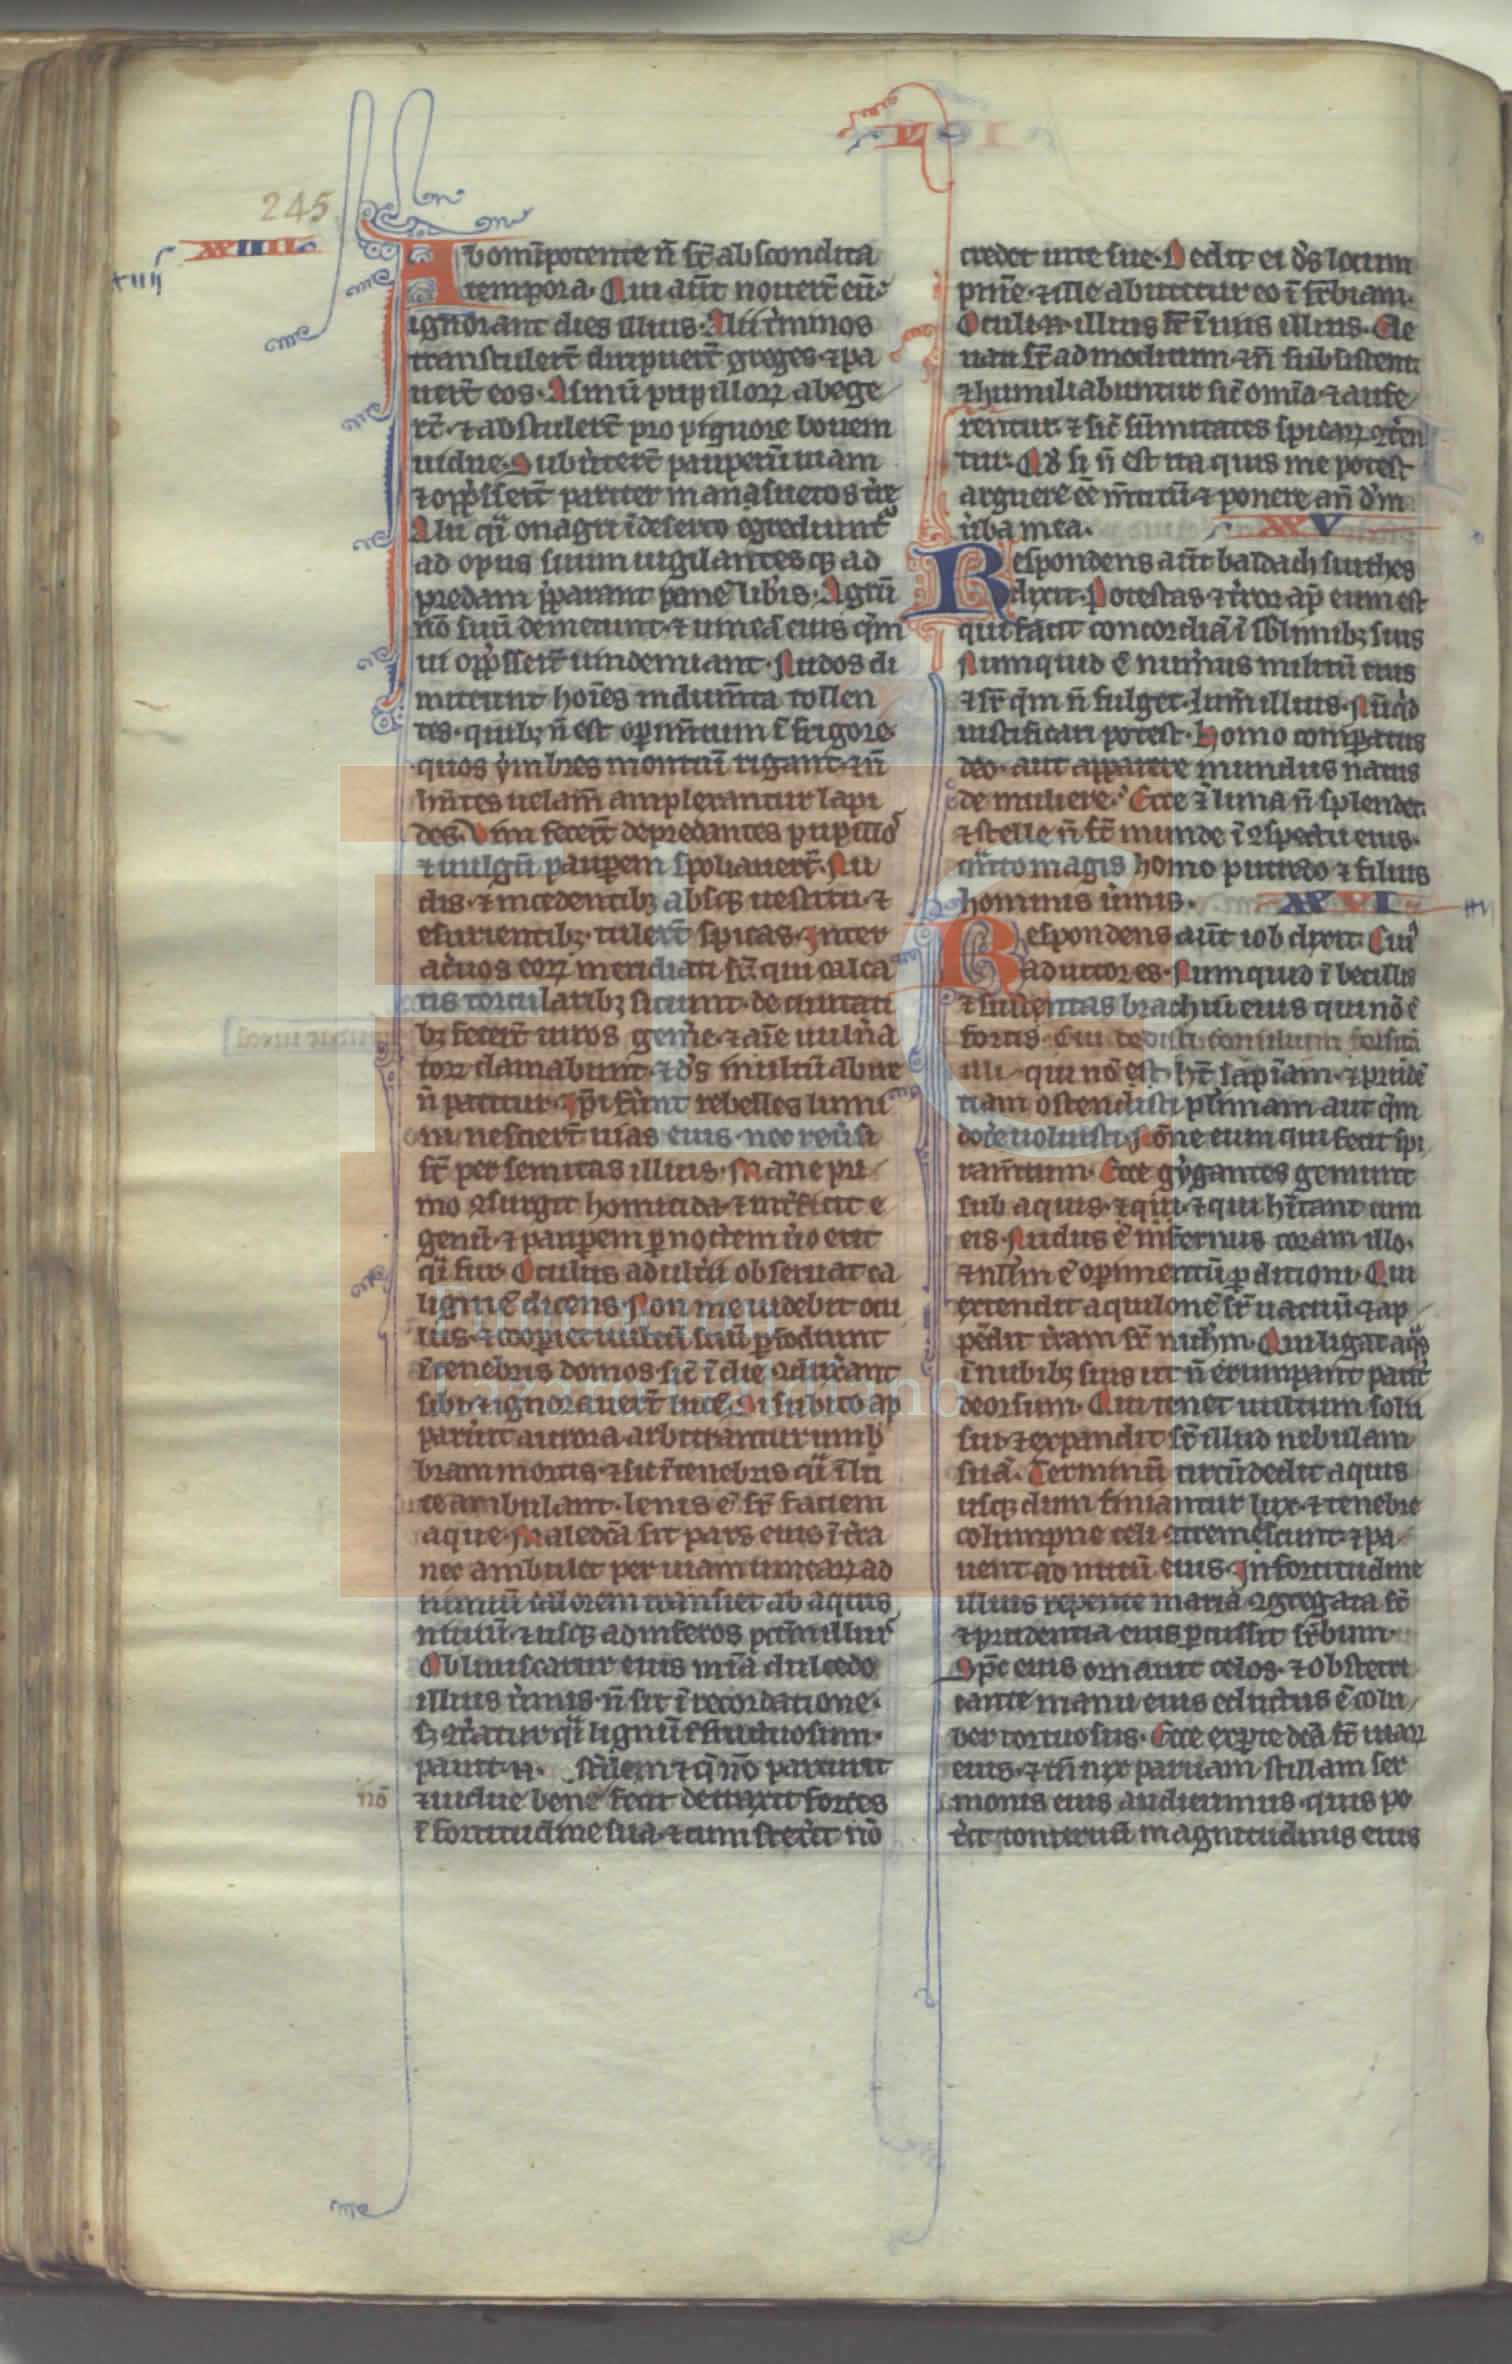 245
XXIIII
Ab om̅ipotente n̅ st̅ abscondita
tempora. Qui aut̅ nouert̅ eu̅
ignorant dies illius. Alii t̅minos
transtulert̅ diripuert̅ greges ⁊ pa
uert̅ eos. Asinu̅ pupilloꝝ abege
rt̅. ⁊ abstulert̅ pro pignore bouem
uidue. Subu̅tert̅ pauperu̅ uiam
⁊ opp̅ssert̅ pariter mansuetos t̅re
Alii q̅i onagri i̅ deserto egrediunt̅
ad opus suum uigilantesqꝫ ad
predam p̅parant pane̅ lib̅is. Agru̅
no̅ suu̅ demetunt. ⁊ uinea̅ eius q̅m
ui opp̅ssert̅ uindemiant. Nudos di
mittunt hoi̅es indum̅ta tollen
tes. quibꝫ n̅ est op̅im̅tum i̅ frigore.
quos ymbres montiu̅ rigant. ⁊ n̅
hn̅tes uelam̅ amplexantur lapi
des. Vim fecert̅ depredantes pupillo̅
⁊ uulgu̅ paup̅em spoliauert̅. Nu
dis. ⁊ incedentibꝫ absqꝫ uestitu. ⁊
esurientibꝫ. tulert̅ spicas. Inter
ac̅uos eoꝝ meridiati st̅ qui calca
tis torcularibꝫ sitiunt. de ciuitati
bꝫ fecert̅ uiros geme̅. ⁊ ai̅e uuln̅a
toꝝ clamabunt. ⁊ d̅s inultu̅ abire
n̅ patitur. Ip̅i fu̅nt rebelles lumi
ni. nesciert̅ uias eius. nec reu̅si
st̅ per semitas illius. Mane pri
mo ꝯsurgit homicida. ⁊ int̅ficit e
genu̅. ⁊ paup̅em p̅ noctem u̅o erit
q̅i fur. Oculus adult̅i obseruat ca
ligine̅ dicens. Non me uidebit ocu
lus. ⁊ coop̅iet uultu̅ suu̅ p̅fodiunt
i̅ tenebris domos. sic̅ i̅ die ꝯdix̅ant
sibi. ⁊ ignorauert̅ luce̅. Si subito ap
paru̅it aurora. arbitrantur umb
bram mortis. ⁊ sic i̅ tenebris q̅i i̅ lu
ce ambulant. leuis e̅ sr̅ faciem
aque. Maledc̅a sit pars eius i̅ t̅ra
nec ambulet per uiam uinearꝝ ad
nimiu̅ calorem transiet ab aquis
niuiu̅. ⁊ usqꝫ ad inferos pcc̅m illiu̅
Obliuiscatur eius mi̅a dulcedo
illius u̅mis. n̅ sit i̅ recordatione.
sꝫ ꝯt̅atur q̅i lignu̅ i̅fructuosum.
pauit. n. st̅ilem ⁊ q̅ no̅ parturit
no̅
⁊ uidue bene̅ fecit. detraxit fortes
i̅ fortitudine sua. ⁊ cum stet̅it no̅
credet uite sue. Dedit ei d̅s locum
pni̅e. ⁊ ille abutitur eo i̅ sup̅biam.
Oculi .n. illius st̅ i̅ uiis illius. Ele
uati st̅ ad modicum. ⁊ n̅ subsistent
⁊ humiliabuntur sic̅ omi̅a. ⁊ aufe
rentur. ⁊ sic̅ su̅mitates spicaꝝ ꝯt̅en
tur. Qd̅ si n̅ est ita quis me potest
arguere e̅e m̅titu̅. ⁊ ponere an̅ d̅m
u̅ba mea.
XXV
Respondens aut̅ baldach suithes
dixit. Potestas. ⁊ t̅ror ap̅ eum est
qui facit concordia̅ i̅ sbl̅imibꝫ suis
Numquid e̅ num̅us militu̅ eius
⁊ sr̅ q̅m n̅ fulget. lum̅ illius. Nu̅q̅d
iustificari potest. Homo comparatus
deo. aut apparere mundus natus
de muliere. Ecce ⁊ luna n̅ splendet.
⁊ stelle n̅ st̅ munde i̅ ꝯspectu eius.
q̅nto magis homo putredo ⁊ filius
hominis u̅mis.
XXVI
Respondens aut̅ iob dixit. Cui̅
adiutor es. Numquid i̅becillis
⁊ sustentas brachiu̅ eius qui no̅ e̅
fortis. Cui dedisti consilium forsita̅
illi. qui no̅ est. ht̅ sapi̅am. ⁊ prude̅
tiam ostendisti plr̅imam. aut q̅m
doc̅e uoluisti. No̅ne eum qui fecit spi
ram̅tum. Ecce gygantes gemunt
sub aquis. ⁊ qui. ⁊ qui hi̅tant cum
eis. Nudus e̅ infernus coram illo.
⁊ nullm̅ e̅ op̅imentu̅ p̅ditioni. Qui
extendit aquilone̅ sr̅ uacuu̅. ⁊ ap
pe̅dit t̅ram sr̅ nichm̅. Qui ligat aq̅s
i̅ nubibꝫ suis ut n̅ erumpant parit̅
deorsum. Qui tenet uultum solii
sui. ⁊ expandit sr̅ illud nebulam
sua̅. Terminu̅ circu̅dedit aquis
usqꝫ dum finiantur lux. ⁊ tenebre
columpne celi ꝯtremescunt. ⁊ pa
uent ad nutu̅ eius. In fortitudine
illius repente maria ꝯgregata st̅
⁊ prudentia eius p̅cussit sup̅bum.
Sp̅c eius ornauit celos. ⁊ obstetri
cante manu eius eductus e̅ colu
ber tortuosus. Ecce ex p̅te dc̅a st̅ uiaꝝ
eius. ⁊ cu̅ uix paruam stillam ser
monis eius audiuimus. quis po
t̅it tonitruu̅ magnitudinis eius